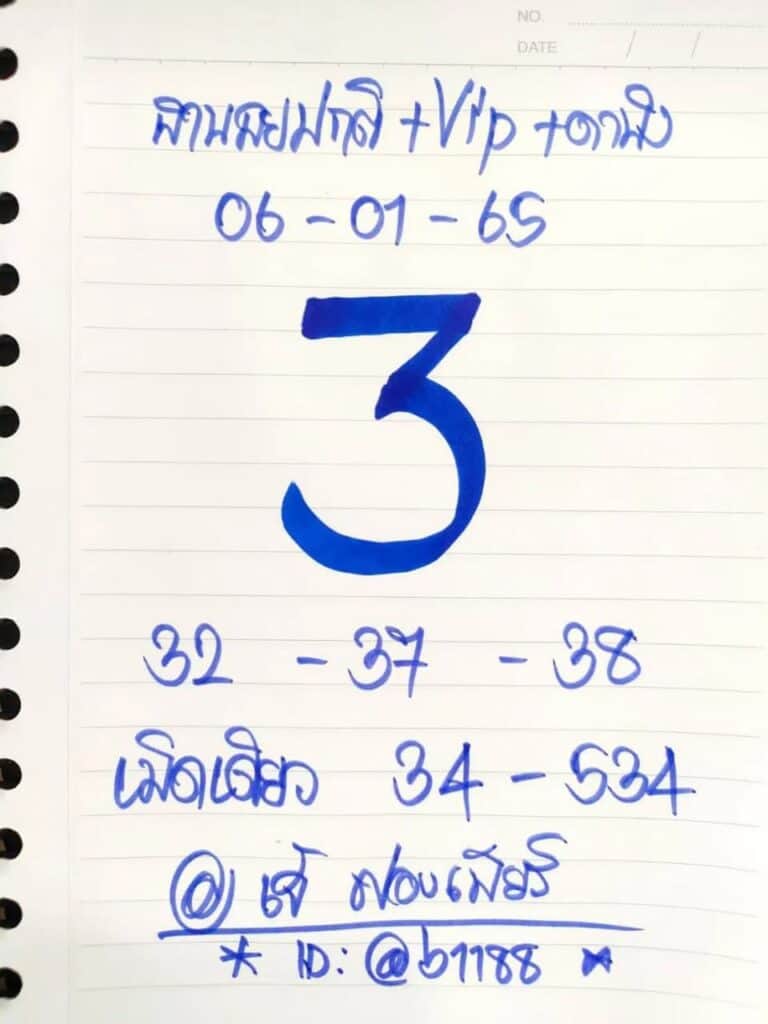 NO.
DATE / /
ฮานอยปกติ + Vip + ดานัง
06 - 01 - 65
3
32 - 37 - 38
เม็ดเดียว 34 - 534
@ เจ๊ ฟองเบียร์
* ID: @b1188 *